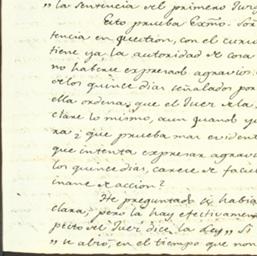 „ la sentencia del primero Juez
Esto prueba Exmo. Señ
tencia en question, con el curso
tiene ya la autoridad de cosa
no habiendo expresado agravios
de los quince dias señalados por
ella ordena, que el Juez de la
clare lo mismo, aun quando y
ra? ¿que prueba mas evidente
que intenta expresar agravi
los quince dias, carece de facul
inane de accion?
He preguntado si habia
clara; pero la hay efectivamen
pcito de Juez dice la Ley „ Si
„ se alzó, en el tiempo que non